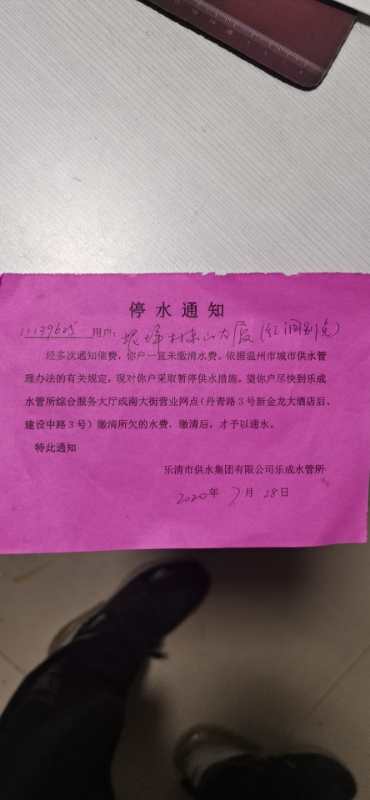 停水通知
11139625 用户：
经多次通知催费，你户一直未缴清水费。依据温州市城市供水管
理办法的有关规定，现对你户采取暂停供水措施。望你户尽快到乐成
水管所综合服务大厅或南大街营业网点（丹青路3号新金龙大酒店后、
建设中路3号）缴清所欠的水费，缴清后，才予以通水。
特此通知
乐清市供水集团有限公司乐成水管所
2020年 7月 28日